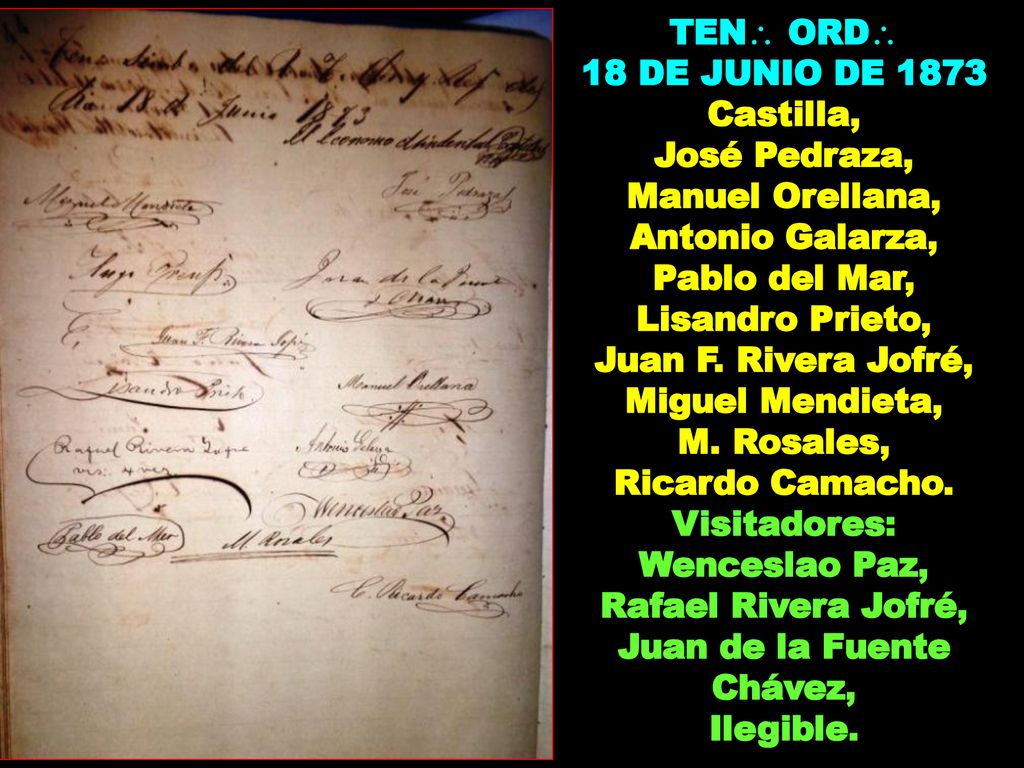 del
Dia 18 de Junio 1873
El Economo
José Pedraza
Miguel Mendieta
Hugo Preuss
Juan de la Fuente
Juan F. Rivera Jofré
Lisandro Prieto
Manuel Orellana
Rafael Rivera Jofré
vis.
Antonio Galarza
Wenceslao Paz
Pablo del Mar
M. Rosales
C. Ricardo Camacho
TEN∴ ORD∴
18 DE JUNIO DE 1873
Castilla,
José Pedraza,
Manuel Orellana,
Antonio Galarza,
Pablo del Mar,
Lisandro Prieto,
Juan F. Rivera Jofré,
Miguel Mendieta,
M. Rosales,
Ricardo Camacho.
Visitadores:
Wenceslao Paz,
Rafael Rivera Jofré,
Juan de la Fuente
Chávez,
Ilegible.